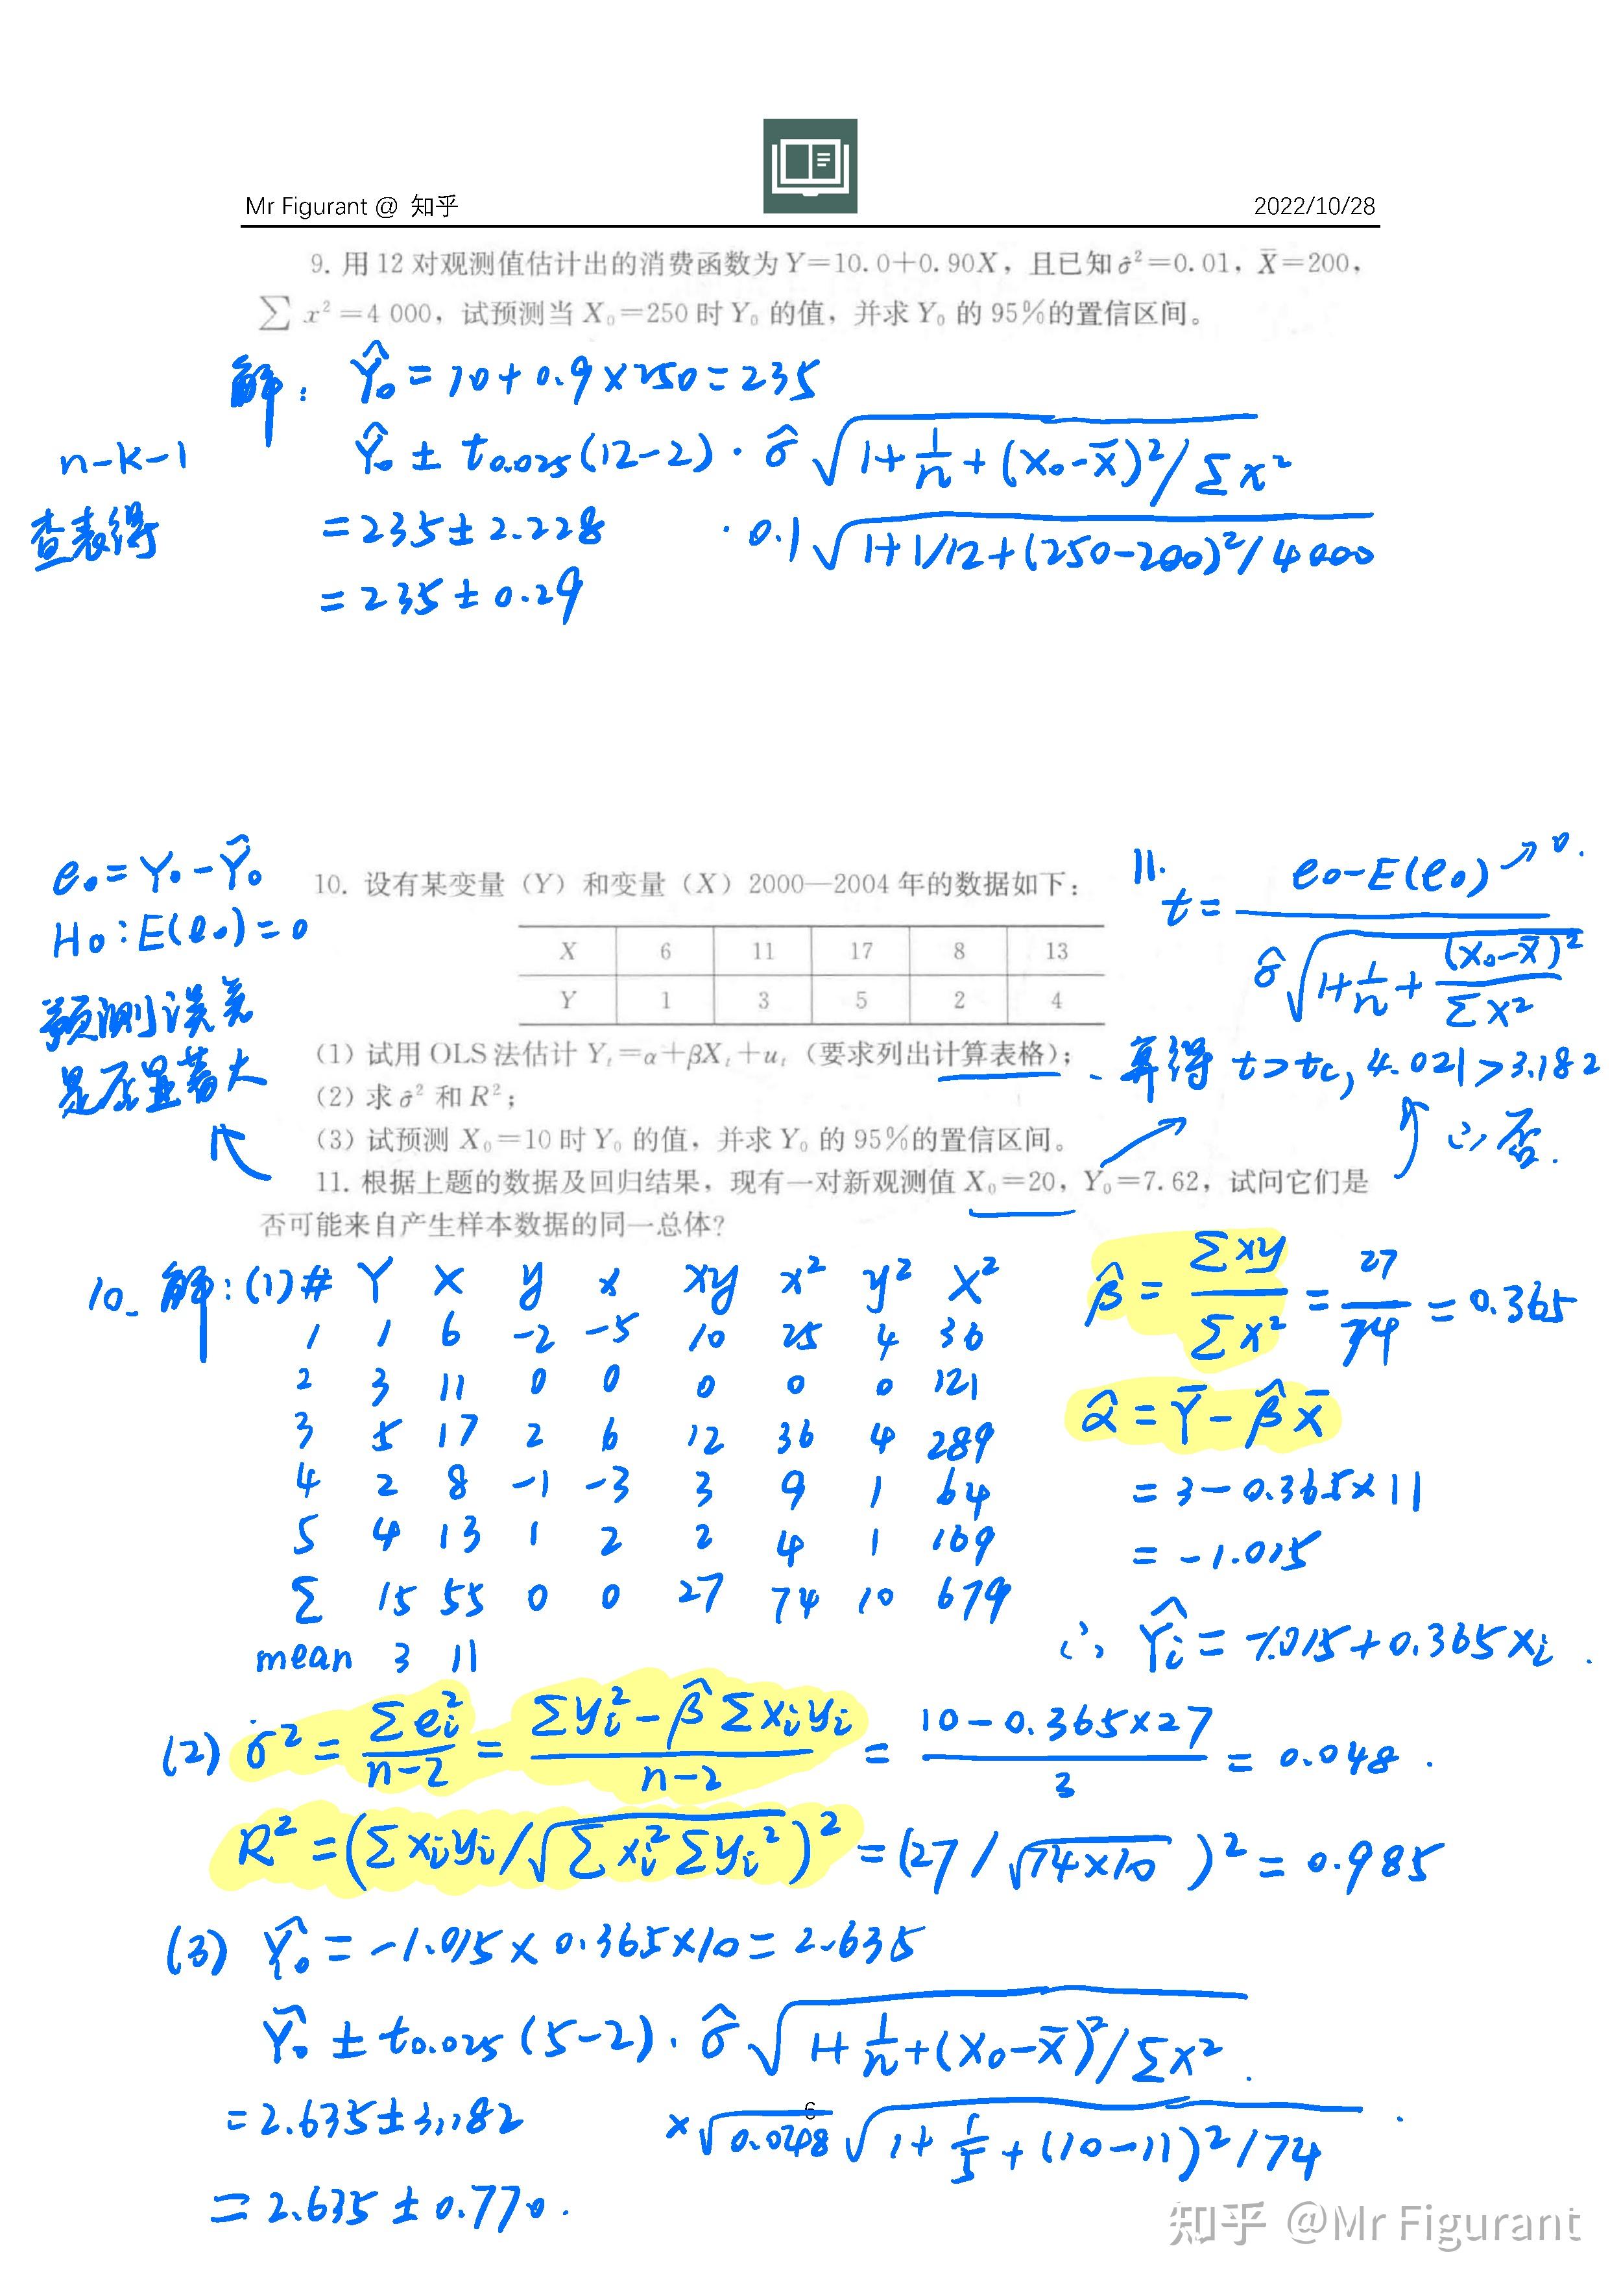 Mr Figurant @ 知乎
2022/10/28
9. 用 12 对观测值估计出的消费函数为 Y=10.0+0.90X，且已知 σ̂²=0.01，X̄=200，
∑ x²=4 000，试预测当 X₀=250 时 Y₀ 的值，并求 Y₀ 的 95%的置信区间。
解： Ŷ₀ = 10 + 0.9 × 250 = 235
Ŷ₀ ± t₀.₀₂₅ (12-2) · σ̂ √(1+1/n+(X₀-X̄)²/∑x²)
n-k-1
查表得
= 235 ± 2.228 · 0.1 √(1+1/12+(250-200)²/4000)
= 235 ± 0.29
e₀ = Y₀ - Ŷ₀
H₀ : E(e₀) = 0
预测误差
是否显著大
10. 设有某变量（Y）和变量（X）2000—2004 年的数据如下：
X 6 11 17 8 13
Y 1 3 5 2 4
(1) 试用 OLS 法估计 Yₜ=α+βXₜ+uₜ（要求列出计算表格）；
(2) 求 σ̂² 和 R²；
(3) 试预测 X₀=10 时 Y₀ 的值，并求 Y₀ 的 95%的置信区间。
11. 根据上题的数据及回归结果，现有一对新观测值 X₀=20，Y₀=7.62，试问它们是
否可能来自产生样本数据的同一总体？
11.
t = (e₀-E(e₀)) → 0. / σ̂ √(1+1/n+(X₀-X̄)²/∑x²)
算得 t>tc, 4.021>3.182
∴ 否.
10. 解：(1) # Y X y x xy x² y² X²
1 1 6 -2 -5 10 25 4 36
2 3 11 0 0 0 0 0 121
3 5 17 2 6 12 36 4 289
4 2 8 -1 -3 3 9 1 64
5 4 13 1 2 2 4 1 169
∑ 15 55 0 0 27 74 10 679
mean 3 11
β̂ = ∑xy/∑x² = 27/74 = 0.365
α̂ = Ȳ - β̂X̄
= 3 - 0.365 × 11
= -1.015
∴ Ŷᵢ = -1.015 + 0.365 Xᵢ .
(2) σ̂² = ∑eᵢ²/(n-2) = (∑yᵢ² - β̂∑xᵢyᵢ)/(n-2) = (10-0.365×27)/3 = 0.048 .
R² = (∑xᵢyᵢ/√(∑xᵢ²∑yᵢ²))² = (27/√(74×10))² = 0.985
(3) Ŷ₀ = -1.015 × 0.365 × 10 = 2.635
Ŷ₀ ± t₀.₀₂₅ (5-2) · σ̂ √(1+1/n+(X₀-X̄)²/∑x²) .
= 2.635 ± 3.182 × √0.048 √(1+1/5+(10-11)²/74) .
6
= 2.635 ± 0.770 .
知乎 @Mr Figurant